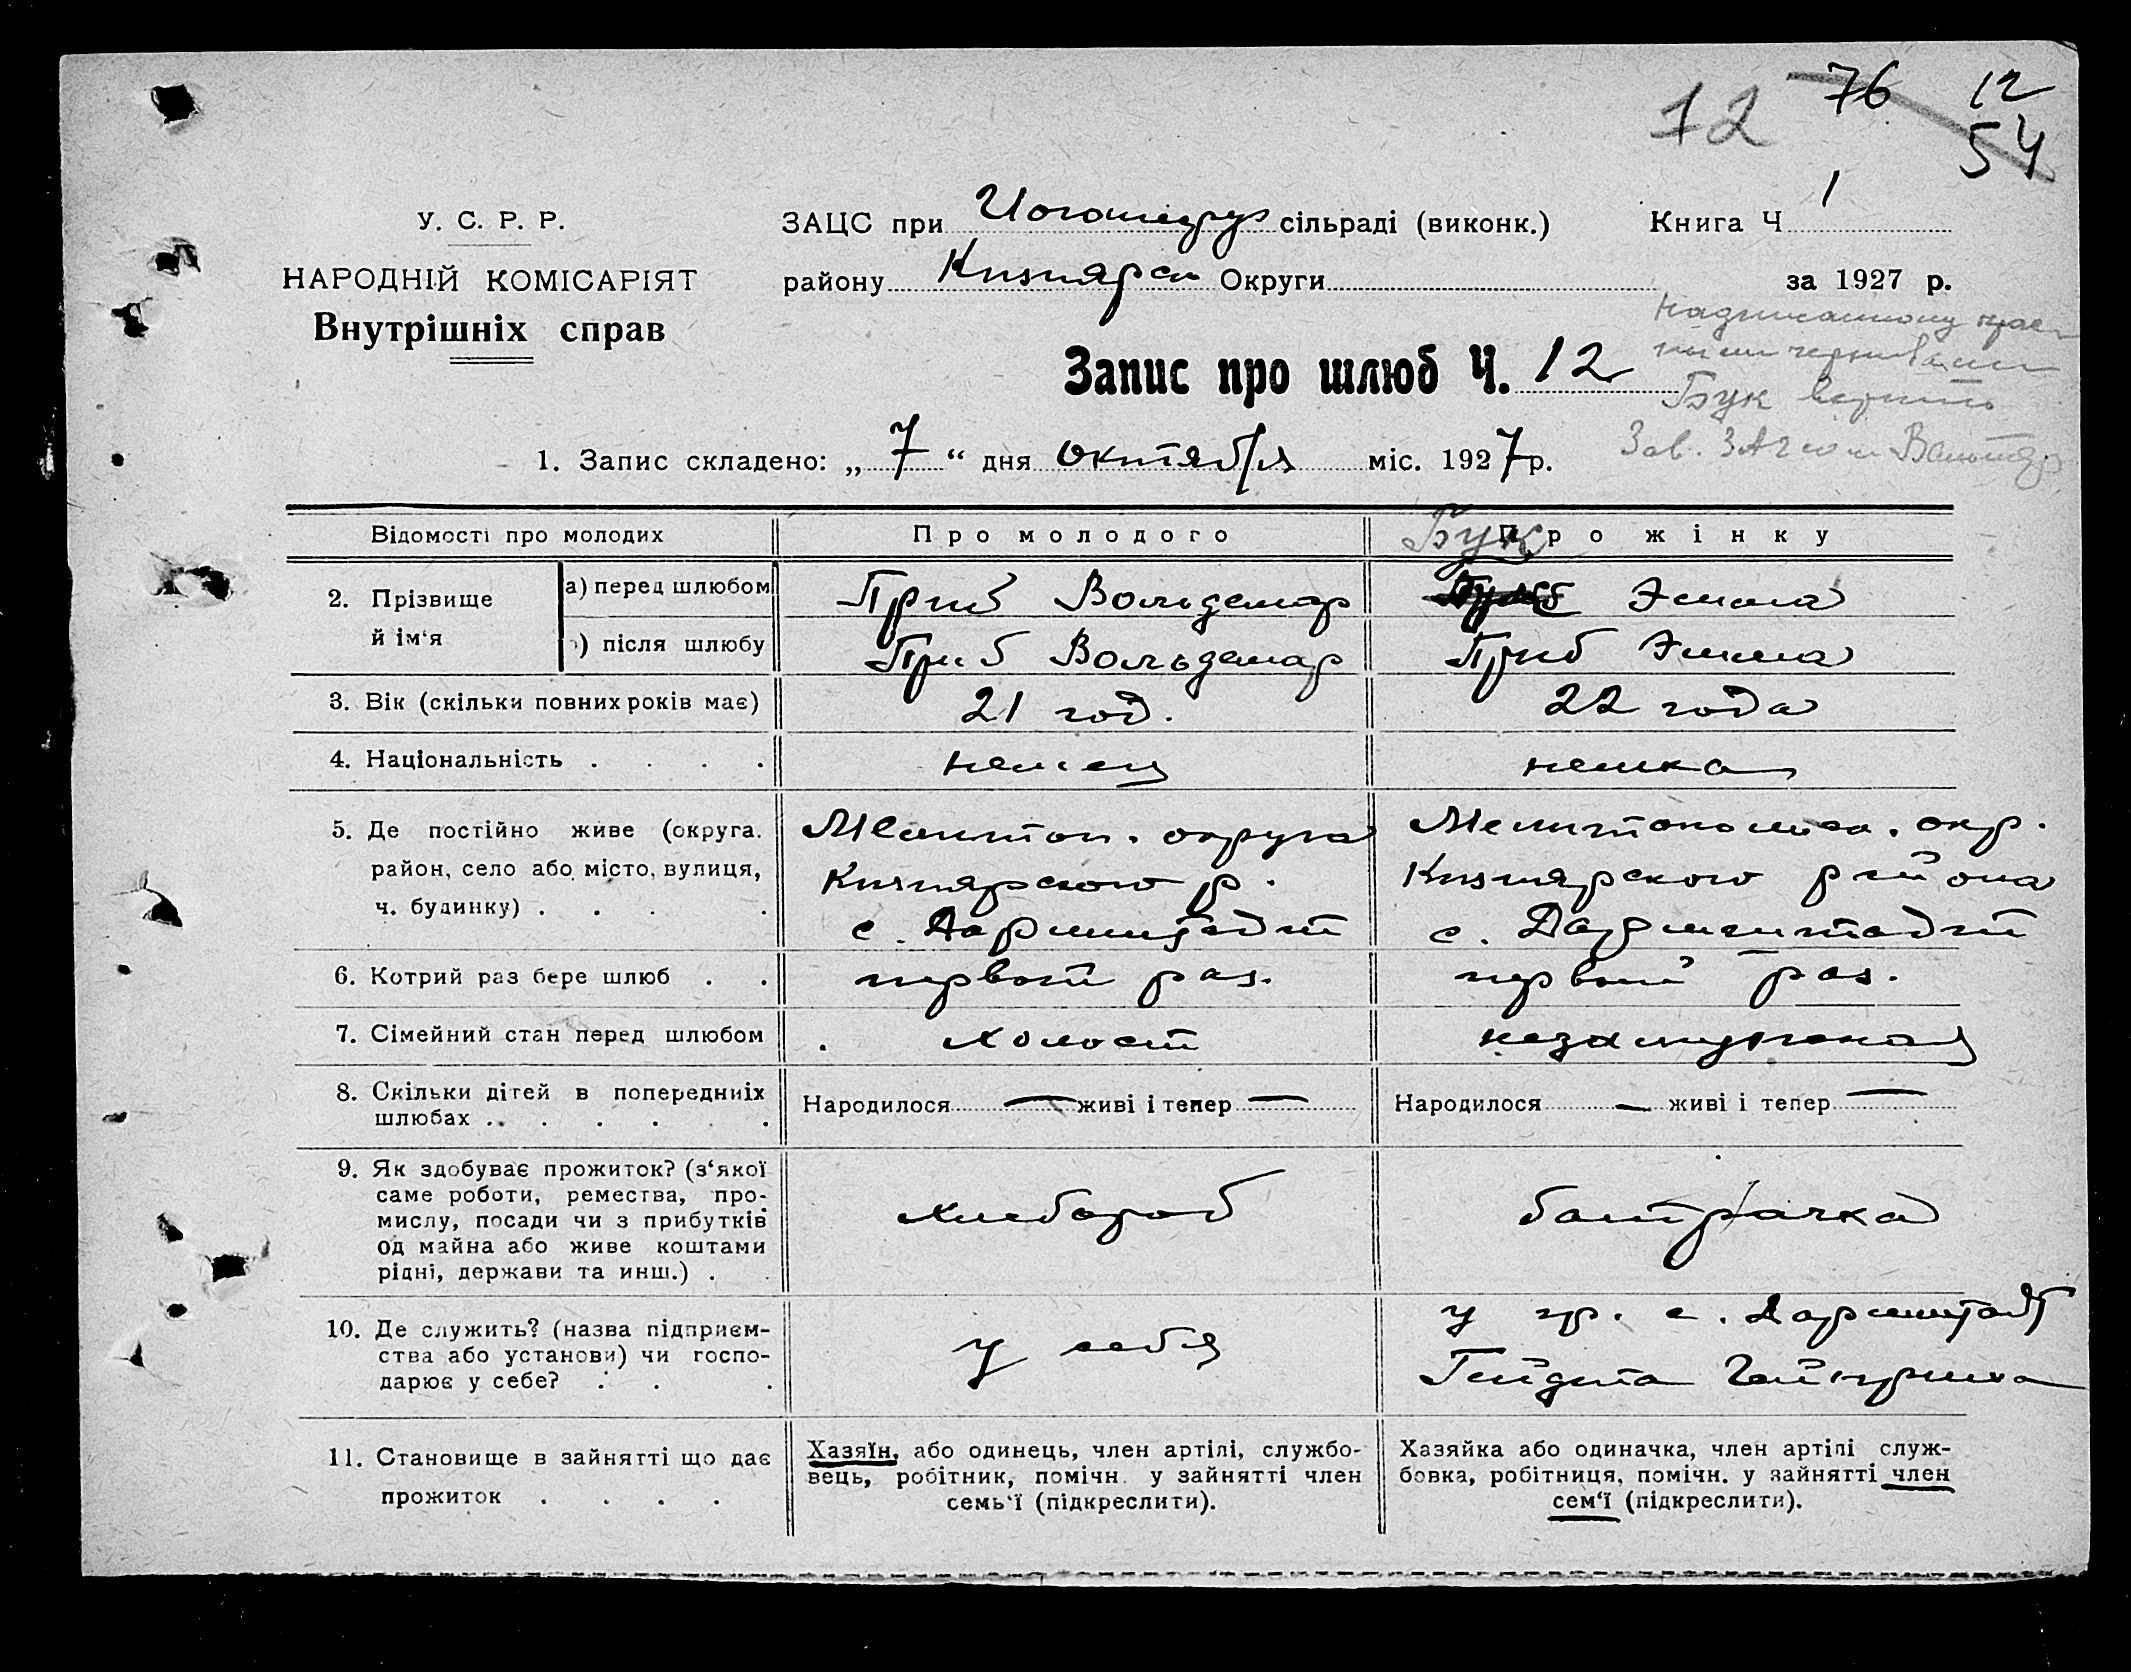 12 76 12
54
У. С. Р. Р.
НАРОДНІЙ КОМІСАРІЯТ
Внутрішніх справ
ЗАЦС при сільраді (виконк.) Книга Ч 1
району Кизиярск Округи за 1927 р.
Надписанному крас-
ными чернилами
Бук верить
Зав. ЗАГСом
Запис про шлюб Ч. 12
1. Запис складено: „ 7 “ дня октября міс. 1927 р.
Відомості про молодих Про молодого Про жінку
Бук
2. Прізвище й ім‘я
а) перед шлюбом Приб Вольдемар Эмма
в) після шлюбу Приб Вольдемар Приб Эмма
3. Вік (скільки повних років має) 21 год. 22 года
4. Національність . . . . немец немка
5. Де постійно живе (округа, Мелитоп. округа Мелитопольск. окр.
район, село або місто, вулиця, Кизиярского р. Кизиярского района
ч. будинку) . . . . с. Дармштадт с. Дармштадт
6. Котрий раз бере шлюб . . первый раз. первый раз.
7. Сімейний стан перед шлюбом холост незамужная
8. Скільки дітей в попередниіх Народилося — живі і тепер — Народилося — живі і тепер —
шлюбах . . . . . .
9. Як здобуває прожиток? (з‘якої
саме роботи, ремества, про-
мислу, посади чи з прибутків хлебороб батрачка
од майна або живе коштами
рідні, держави та инш.) . .
10. Де служить? (назва підприєм- у гр. с. Дармштадт
ства або установи) чи госпо- у себя
дарює у себе? . . . Гайнриха
11. Становище в зайнятті що дає Хазяїн, або одинець, член артілі, службо- Хазяйка або одиначка, член артілі служ-
вець, робітник, помічн. у зайнятті член бовка, робітниця, помічн. у зайнятті член
прожиток . . . . семь‘ї (підкреслити). сем‘ї (підкреслити).